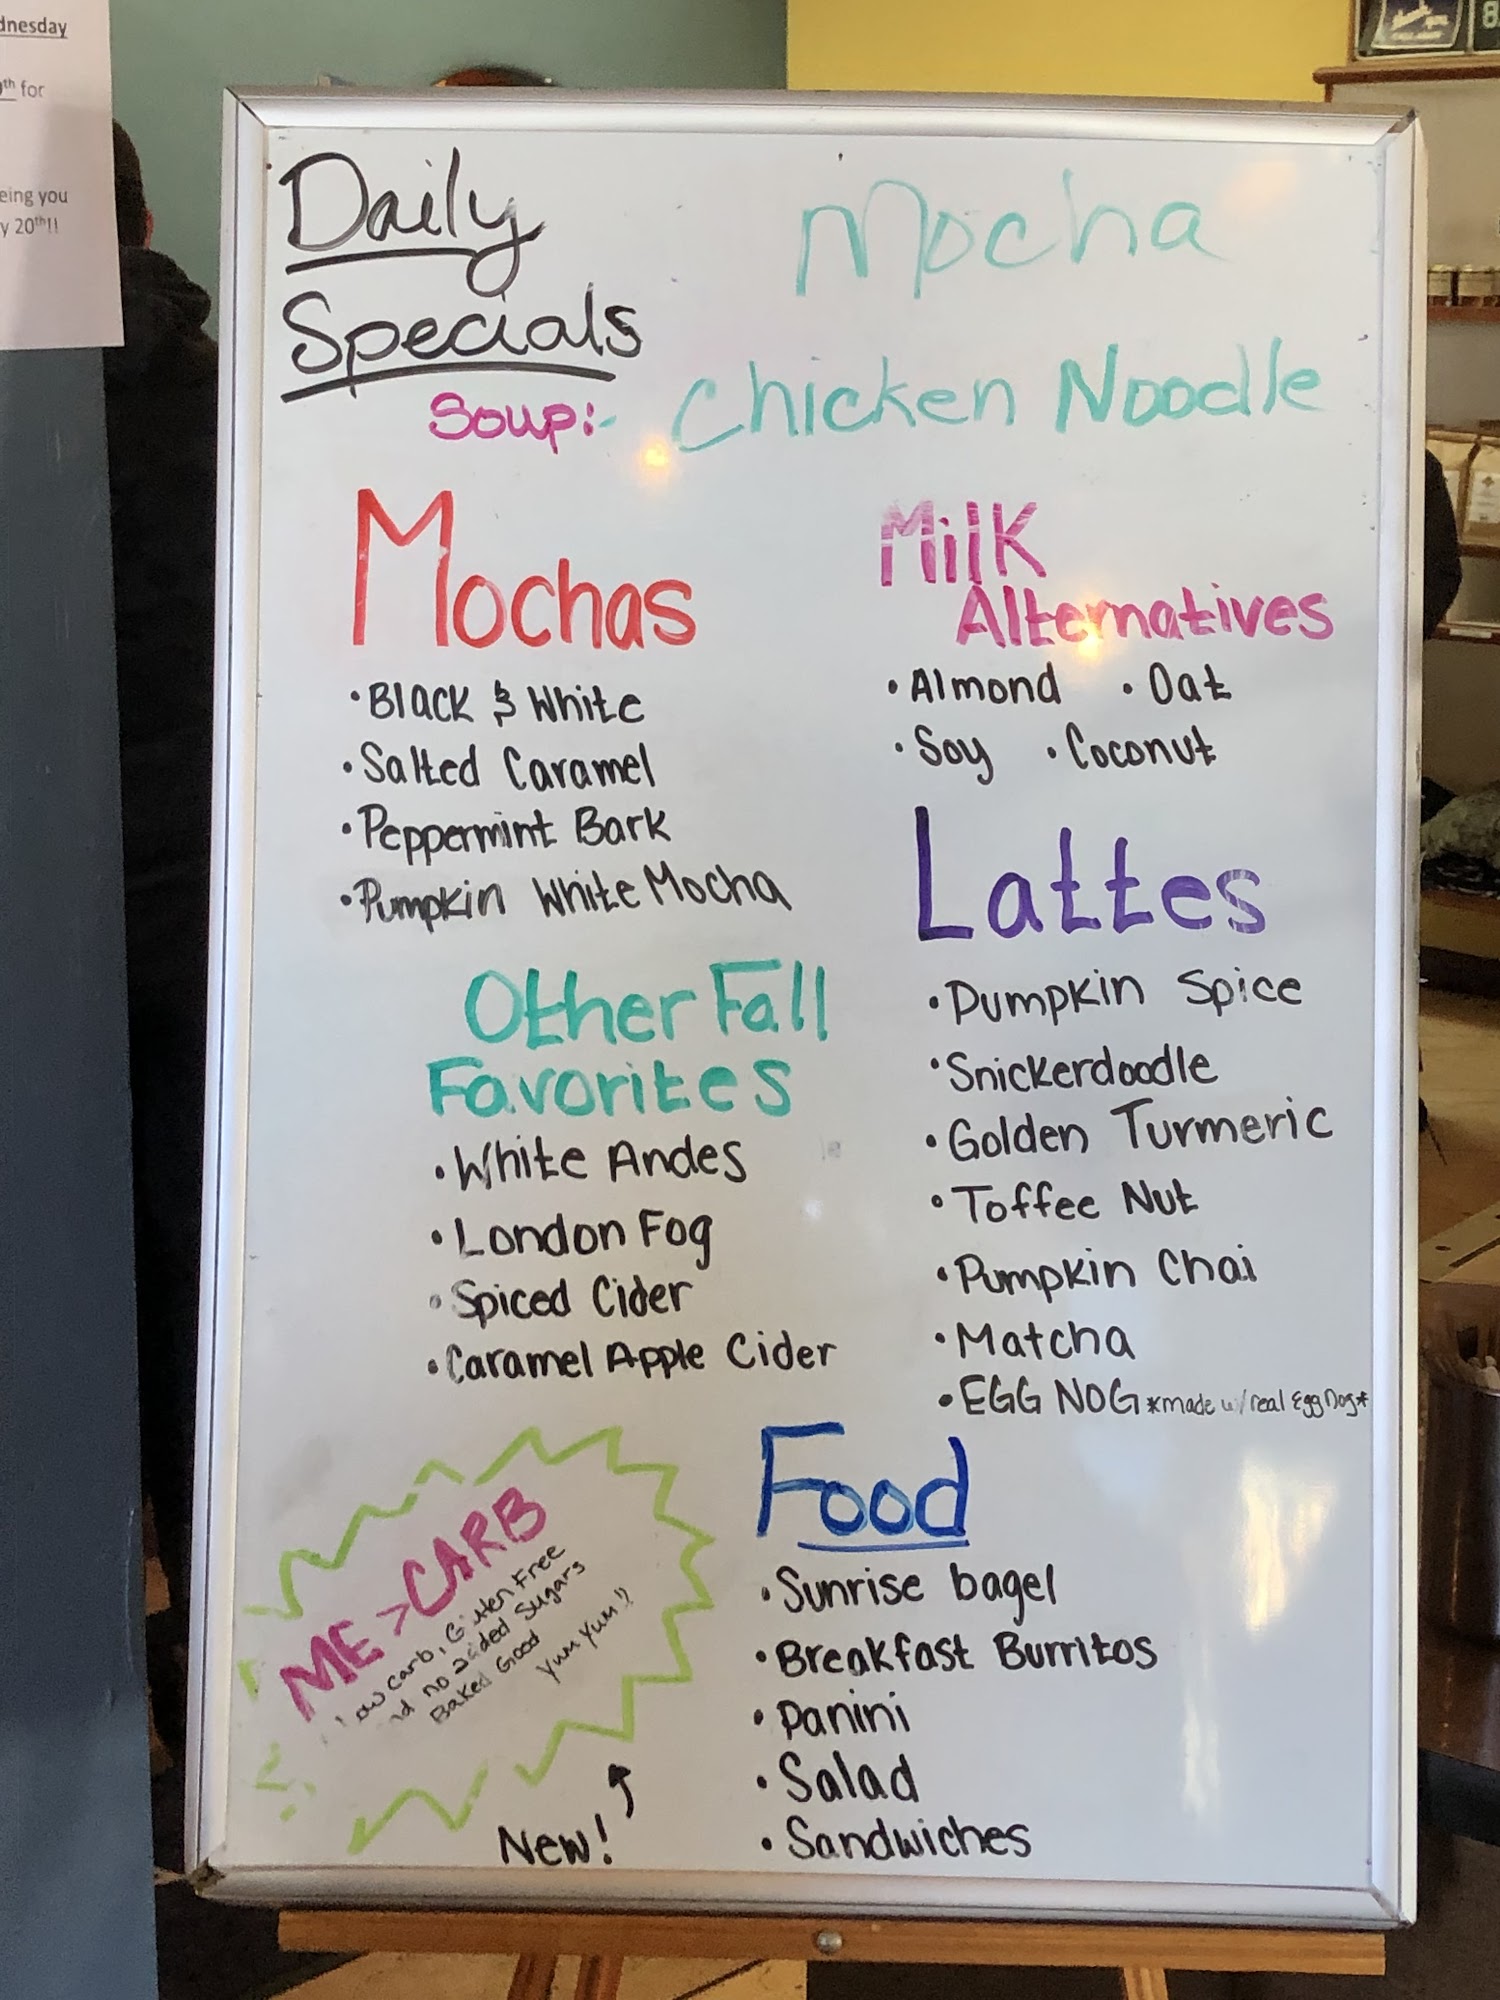 dnesday
th for
eing you
y 20th!!
Daily
Specials
Mocha
Soup:- Chicken Noodle
Mochas
• Black & White
• Salted Caramel
• Peppermint Bark
• Pumpkin White Mocha
Milk
Alternatives
• Almond • Oat
• Soy • Coconut
Lattes
• Pumpkin Spice
• Snickerdoodle
• Golden Turmeric
• Toffee Nut
• Pumpkin Chai
• Matcha
• EGG NOG *made w/real Egg Nog*
Other Fall
Favorites
• White Andes
• London Fog
• Spiced Cider
• Caramel Apple Cider
ME > CARB
low carb, Gluten Free
nd no added sugars
Baked Good
Yum Yum!!
New!
Food
• Sunrise bagel
• Breakfast Burritos
• Panini
• Salad
• Sandwiches